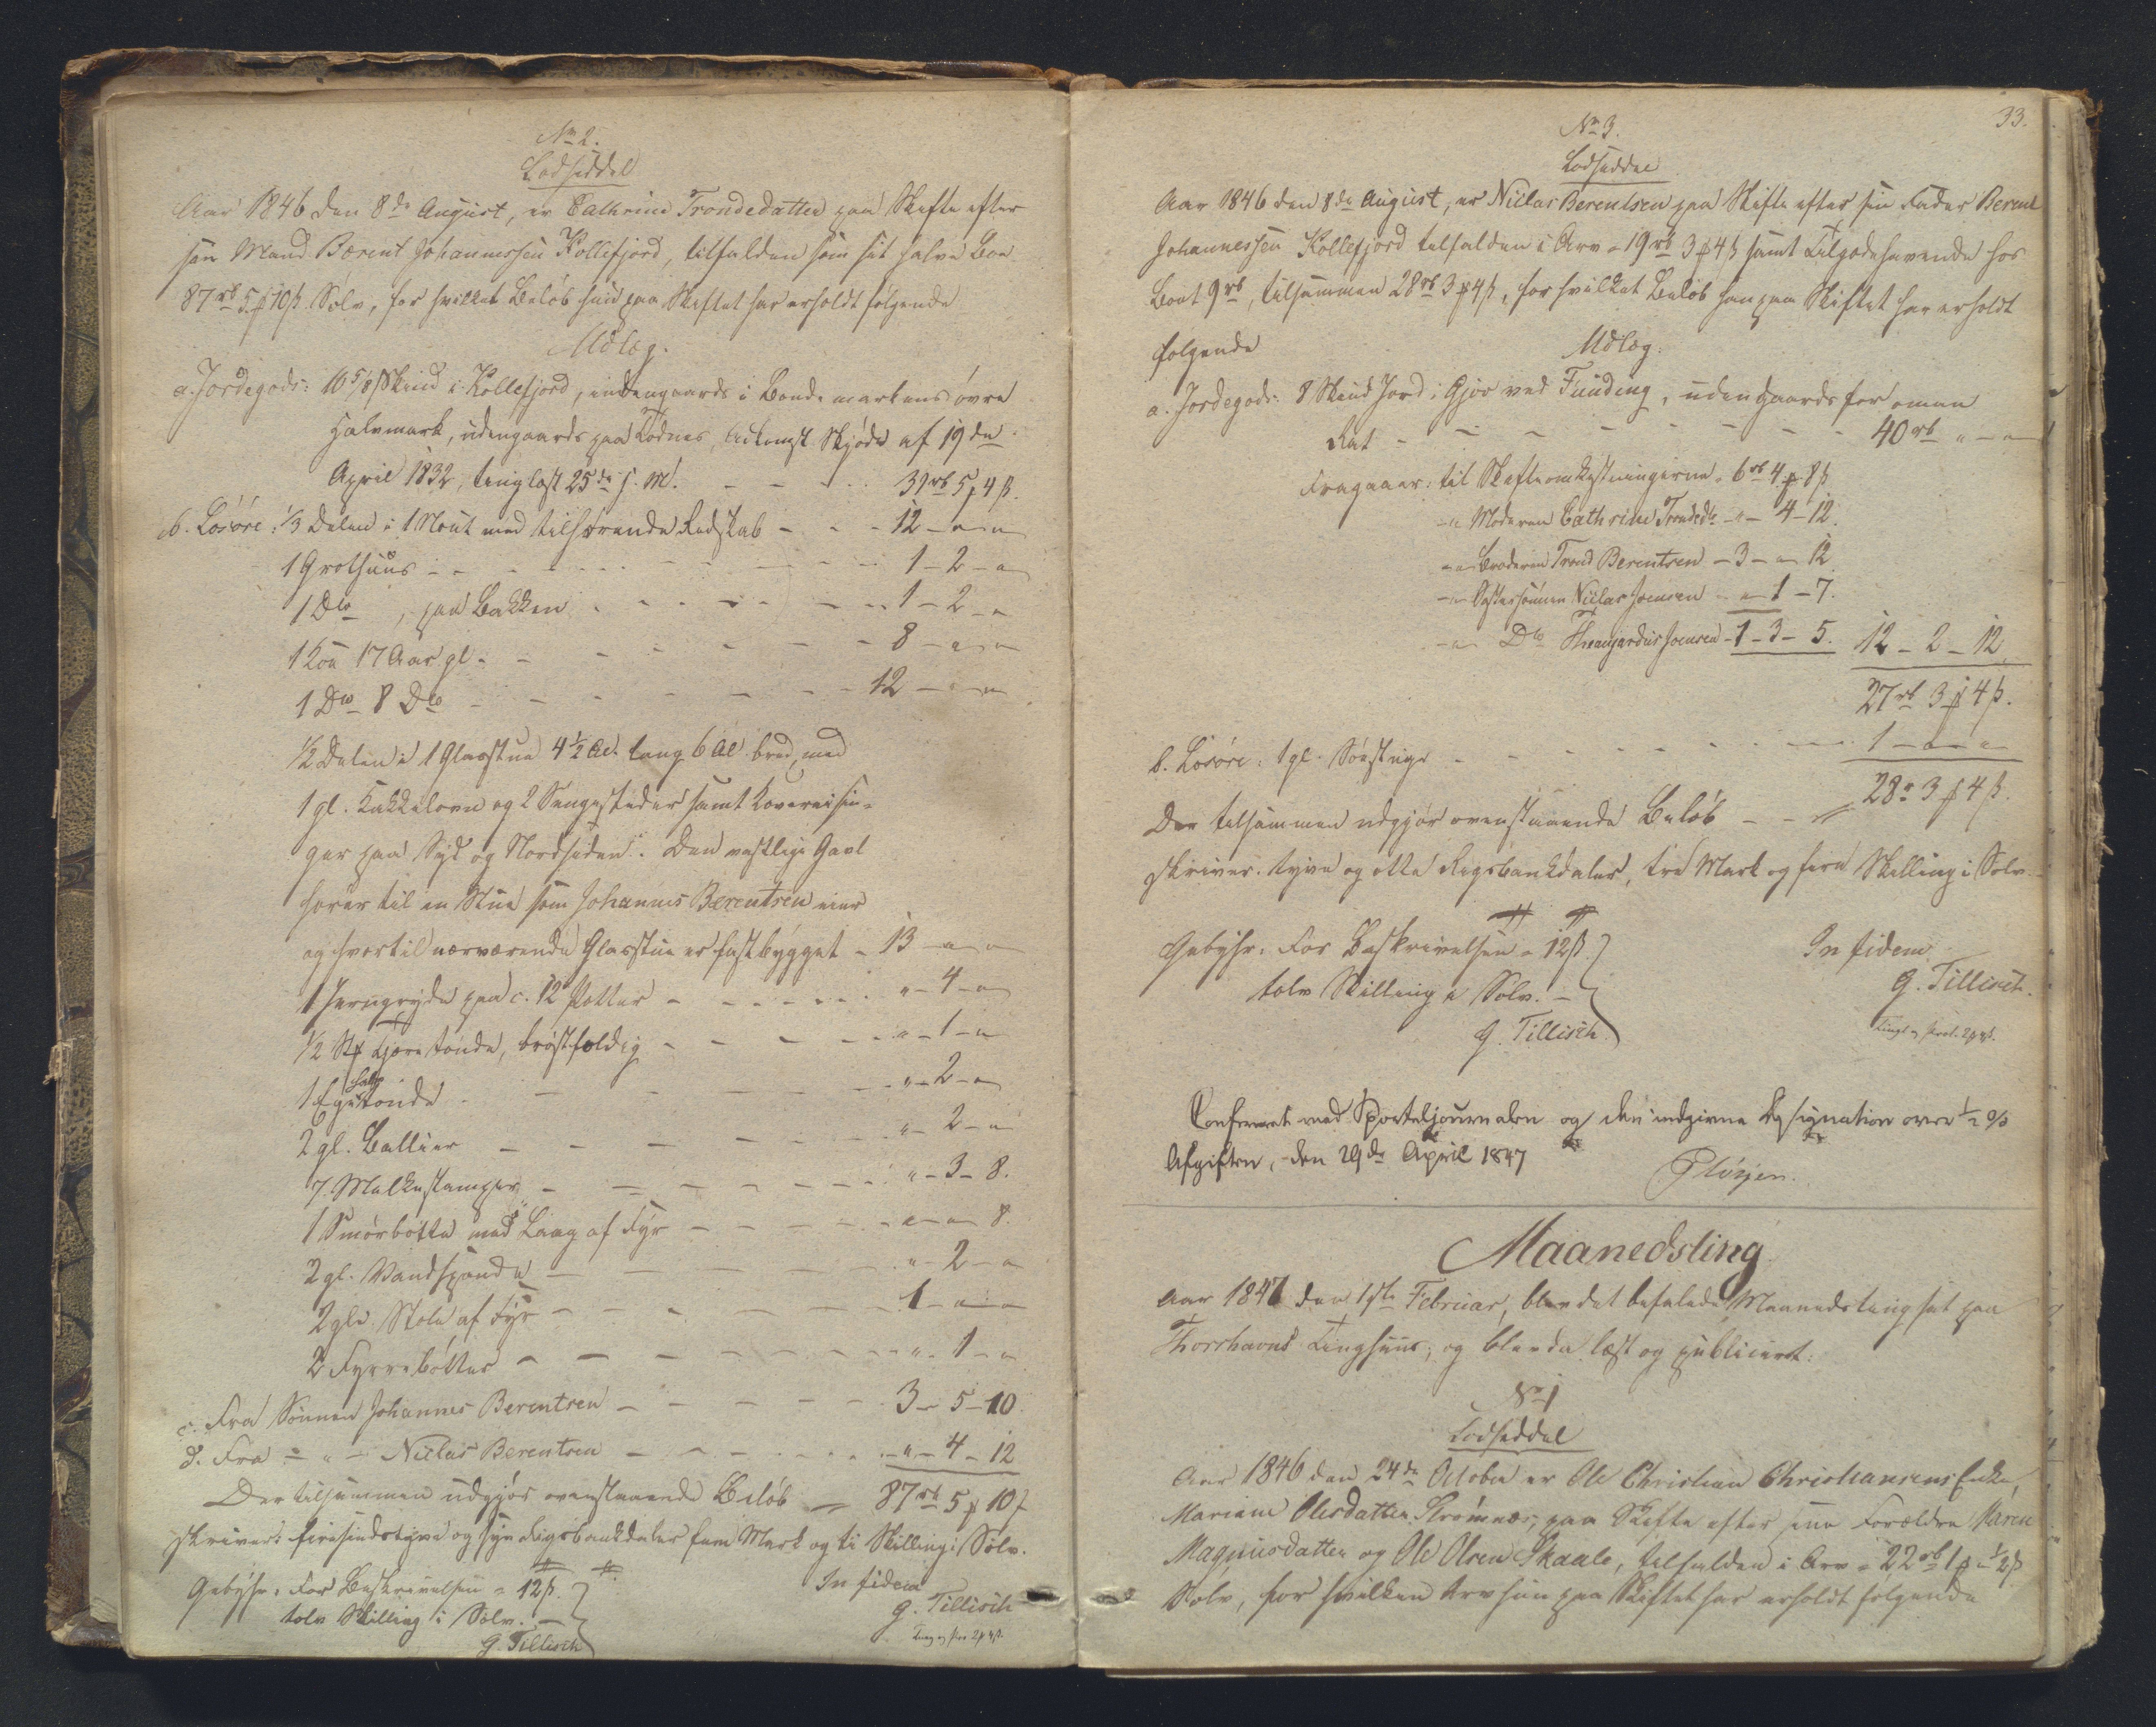 No 2.
Lodseddel
Aar 1846 den 8de August, er Cathrine Trondedatter paa Skifte efter
sin Mand Berent Johannessen Kollefjord, tilfalden som sit halve Boe
87 rb 5 ₻ 10 ß Sølv, for hvilket Beløb hun paa Skiftet har erholdt følgende
Udlæg.
a. Jordegods: 16 5/8 Skind i Kollefjord, indengaards i Bondemarkens øvre
Halvmark, udengaards paa Kodnes, Adkomst Skjøde af 19de
April 1832, tinglæst 25de s. M. - - - 39 rb 5 ₻ 4 ß.
b. Løsøre: 1/3 Delen i 1 Nout med tilhørende Redskab - - 12 - " - "
1 Grothuus - - - 1 - 2 - "
1 Do, paa Bakken - - - 1 - 2 - "
1 Koe 17 Aar gl. - - - 8 - " - "
1 Do 8 Do - - - 12 - " - "
1/2 Delen i 1 Glasstue 4 1/2 Al. lang 6 Al bred, med
1 gl. Kakkelovn og 2 Sengesteder samt
ger paa Syd og Nordsiden. Den vestlige Gavl
hører til en Stue som Johannes Berentsen eier
og hvortil nærværende Glasstue er fastbygget - 13 - " - "
1 Jerngryde paa c. 12 Potter - - - " - 4 - "
1/2 Stk Tjære tønde, brøstfældig - - - " - 1 - "
1 Ege halv tønde - - - " - 2 - "
2 gl. Ballier - - - " - 2 - "
7 Melkestamper - - - " - 3 - 8.
1 Smørbøtte med Laag af Fyr - - - " - " 8.
2 gl. Vandspande - - - " - 2 - "
2 gle. Stole af Fyr - - - 1 - " - "
2 Fyrrebøtter - - - " - 1 - "
c. Fra Sønnen Johannes Berentsen - - - 3 - 5 - 10
d. Fra - " - Niclas Berentsen - - - " - 4 - 12
Der tilsammen udgjør ovenstaaende Beløb - 87 rb 5 ₻ 10 ß
skriver firesindstyve og syv Rigsbankdaler fem Mark og ti Skilling i Sølv.
Gebyhr: For Beskrivelsen = 12 ß. In fidem
tolv Skilling i Sølv. - G. Tillisch
G. Tillisch
33.
No 3.
Lodseddel
Aar 1846 den 8de August, er Niclas Berentsen paa Skifte efter sin Fader Berent
Johannessen Kollefjord tilfalden i Arv - 19 rb 3 ₻ 4 ß samt Tilgodehavende hos
Boet 9 rb, tilsammen 28 rb 3 ₻ 4 ß, for hvilket Beløb han paa Skiftet har erholdt
følgende Udlæg:
a. Jordegods: 8 Skind Jord i Gjov ved Funding, udengaards for oman
Ræt - - - 40 rb " - "
Fragaaer: til Skifteomkostningerne - 6 rb 4 ₻ 8 ß
- " Moderen Cathrine Trondedr - " - 4 - 12.
- " Broderen Trond Berentsen - 3 - " - 12
- " Søstersønnen Niclas Joensen - " - 1 - 7.
- " Do Joensen - 1 - 3 - 5. 12 - 2 - 12
27 rb 3 ₻ 4 ß.
b. Løsøre: 1 gl. - - - 1 - " - "
Der tilsammen udgjør ovenstaaende Beløb - - 28 " 3 ₻ 4 ß.
skriver tyve og otte Rigsbankdaler, tre Mark og fire Skilling i Sølv.
Gebyhr: For Beskrivelsen - 12 ß. In fidem
tolv Skilling i Sølv. - G. Tillisch.
G. Tillisch
Confereret med Sporteljournalen og den indgivne Designation over 1/2 %
Afgiften, den 29de April 1847
Maanedsting
Aar 1847 den 1ste Februar, blev det befalede Maanedsting sat paa
Thorshavns Tinghuus; og blev da læst og publiceret:
No 1
Lodseddel
Aar 1846 den 24de October er Ole Christian Christiansens Enke,
Mariane Olesdatter Strømnæs, paa Skifte efter sine Forældre Karen
Magnusdatter og Ole Olsen Skaale, tilfalden i Arv - 22 rb 1 ₻ - 1/2 ß
Sølv, for hvilken Arv hun paa Skiftet har erholdt følgende